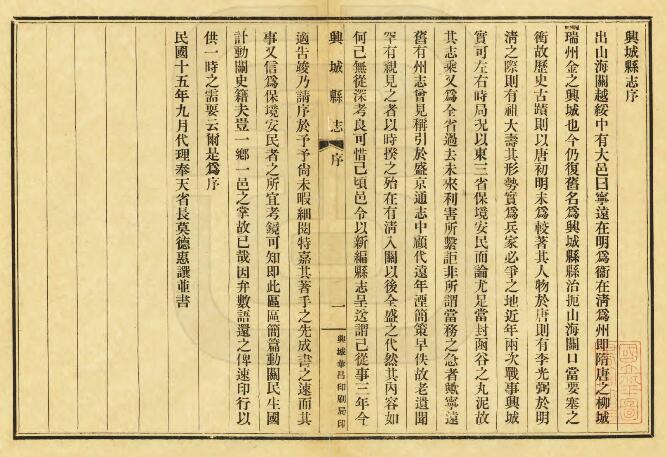 興城縣志序
出山海關越綏中有大邑曰寧遠在明爲衞在淸爲州卽隋唐之柳城
瑞州金之興城也今仍復舊名爲興城縣縣治扼山海關口當要塞之
衝故歷史古蹟則以唐初明末爲較著其人物於唐則有李光弼於明
淸之際則有祖大壽其形勢實爲兵家必爭之地近年兩次戰事興城
實可左右時局况以東三省保境安民而論尤是當封函谷之丸泥故
其志乘又爲全省過去未來利害所繫詎非所謂當務之急者歟寧遠
舊有州志曾見稱引於盛京通志中顧代遠年湮簡策早佚故老遺聞
罕有親見之者以時揆之殆在有淸入關以後全盛之代然其內容如
何已無從深考良可惜已頃邑令以新編縣志呈送謂已從事三年今
興城縣志 序 一 興城華昌印刷局印
適告竣乃請序於予予尙未暇細閱特嘉其著手之先成書之速而其
事又信爲保境安民者之所宜考鏡可知卽此區區簡篇動關民生國
計動關史籍夫豈一鄉一邑之掌故已哉因弁數語還之俾速印行以
供一時之需要云爾是爲序
民國十五年九月代理奉天省長莫德惠譔並書